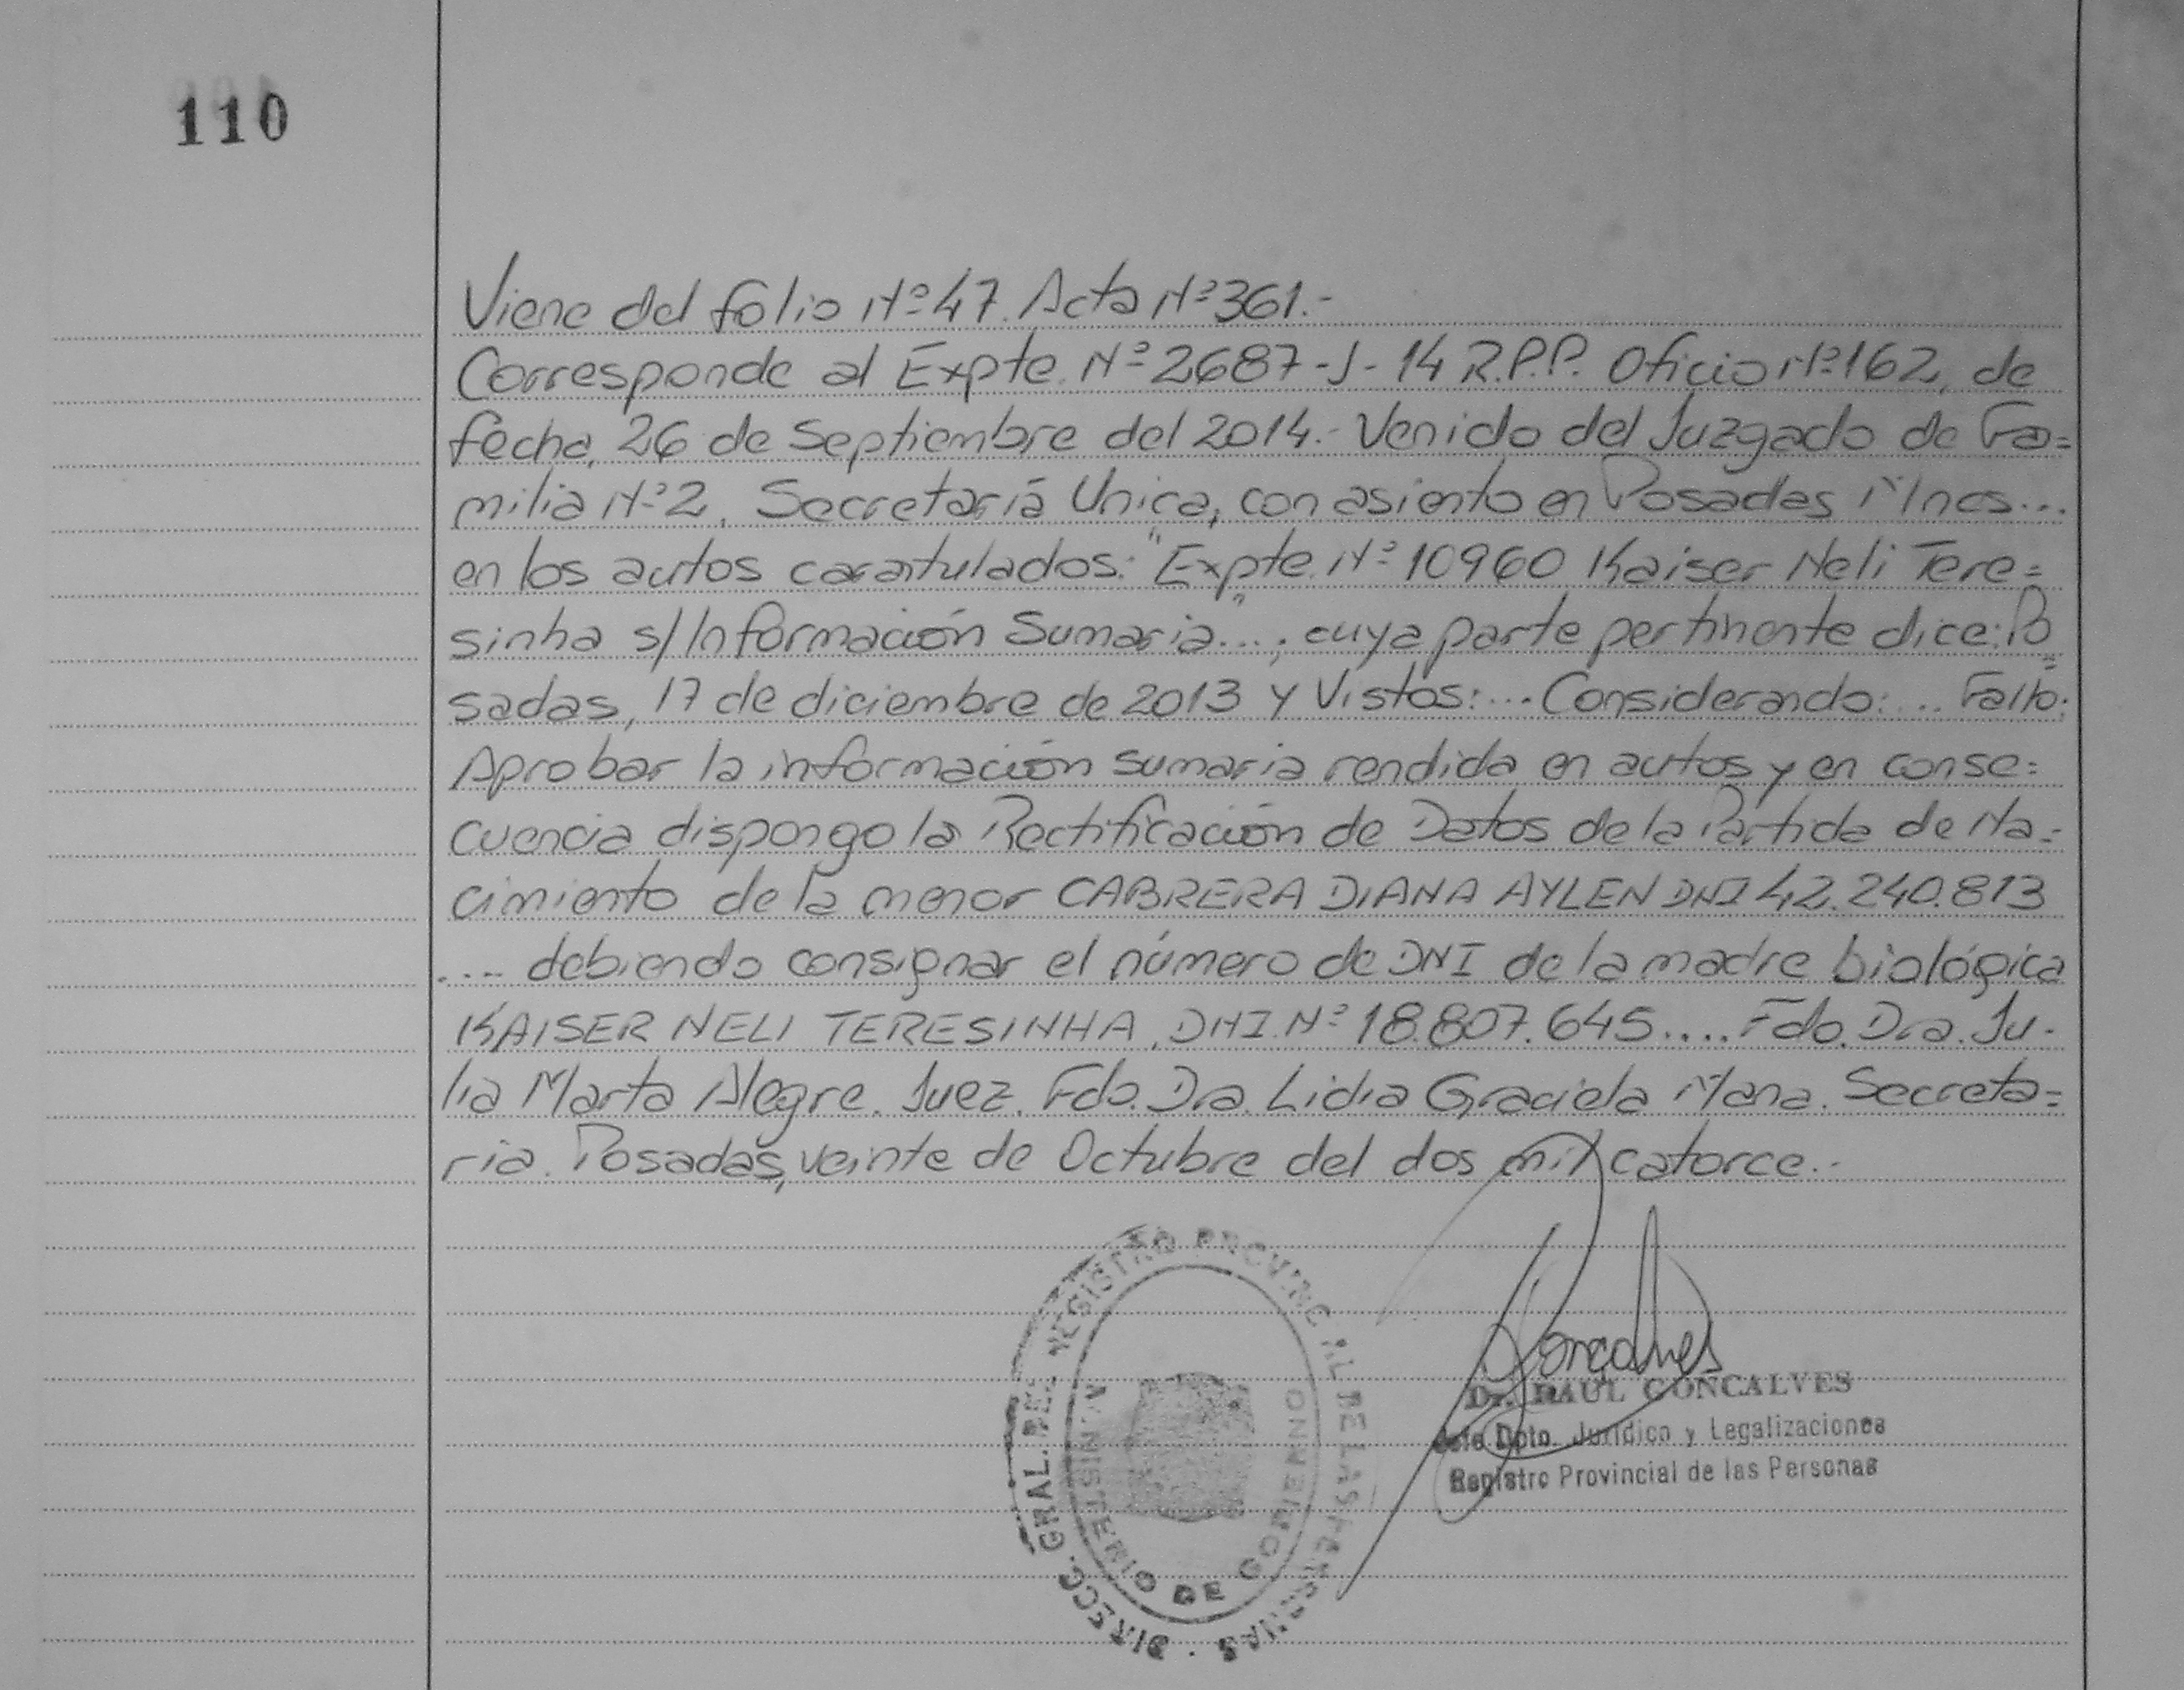 110
Viene del folio Nº 47. Acta Nº 361.-
Corresponde al Expte. Nº 2687-J-14 R.P.P. Oficio Nº 162, de
fecha, 26 de Septiembre del 2014.- Venido del Juzgado de Fa=
milia Nº 2, Secretaría Unica, con asiento en Posadas Mnes...
en los autos caratulados: "Expte. Nº 10960 Kaiser Neli Tere=
sinha s/Información Sumaria"..., cuya parte pertinente dice: Po=
sadas, 17 de diciembre de 2013 y Vistos:... Considerando:... Fallo:
Aprobar la información sumaria rendida en autos y en conse=
cuencia dispongo la Rectificación de Datos de la Partida de Na=
cimiento de la menor CABRERA DIANA AYLEN DNI 42.240.813
.... debiendo consignar el número de DNI de la madre biológica
KAISER NELI TERESINHA, DNI. Nº 18.807.645.... Fdo. Dra. Ju-
lia Marta Alegre. Juez. Fdo. Dra. Lidia Graciela Mana. Secreta=
ria. Posadas, veinte de Octubre del dos mil catorce.-
DIRECC. GRAL. DEL REGISTRO PROVINCIAL DE LAS PERSONAS
MINISTERIO DE GOBIERNO
Goncalves
Dr. RAUL GONCALVES
Jefe Dpto. Jurídico y Legalizaciones
Registro Provincial de las Personas